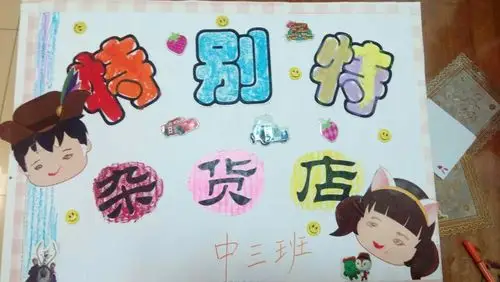 特别特
杂货店
中三班